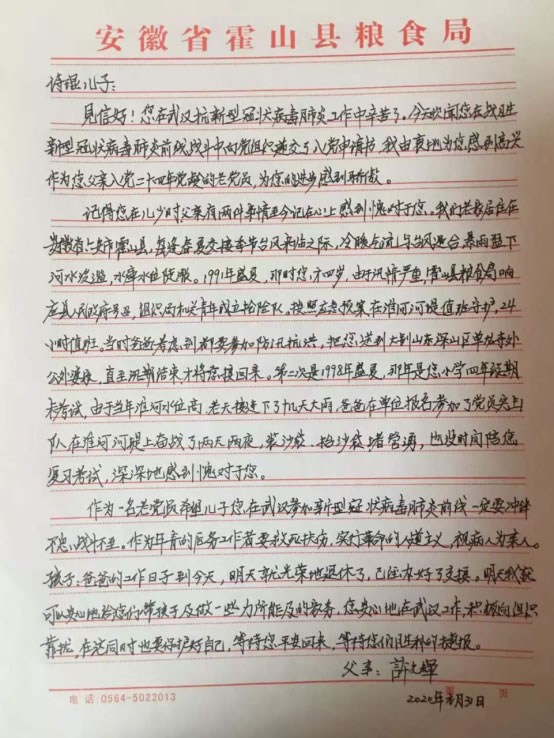 安徽省霍山县粮食局
诗琨儿子:
见信好!您在武汉抗新型冠状病毒肺炎工作中辛苦了。今天欣闻您在战胜
新型冠状病毒肺炎前线战斗中向党组织递交了入党申请书,我由衷地为您感到高兴
作为您父亲入党二十四年党龄的老党员,为您的进步感到骄傲。
记得您在儿少时父亲有两件事情至今记在心上感到愧对于您。我们老家居住在
安徽省六安市霍山县,每逢春夏交接季节台风来临之际,冷暖气流与台风混合,暴雨强下
河水泛滥,水库水位陡涨。1991年盛夏,那时您才四岁,由于汛情严重,霍山县粮食局响
应县人民政府号召,组织局机关青年成立抢险队,按照应急预案在淮河河堤值班守护,24
小时值班。当时爸爸考虑到我们要参加防汛抗洪,把您送到大别山东深山区单位
公外婆家,直至汛期结束才将您接回来。第二次是1998年盛夏,那年是您小学四年级期
末考试,由于当年淮河水位高,老天接连下了九天大雨,爸爸在单位报名参加了党员突击
队在淮河河堤上奋战了两天两夜,装沙袋、抬沙袋、堵管涌,也没时间陪您
复习考试,深深地感到愧对于您。
作为一名老党员希望儿子您在武汉参加新型冠状病毒肺炎前线一定要冲锋
不息,战斗不至。作为年青的医务工作者要救死扶伤,实行革命的人道主义,视病人为亲人。
孩子:爸爸的工作日子到今天,明天就光荣地退休了,已经办好了交接。明天我就
可以安心地给您们带孩子及做一些力所能及的家务,您安心地在武汉工作,积极向组织
靠拢。在这同时也要保护好自己,等待您平安回来,等待您们胜利的捷报。
父亲:许
2020年 月31日
电话:0564-5022013
页